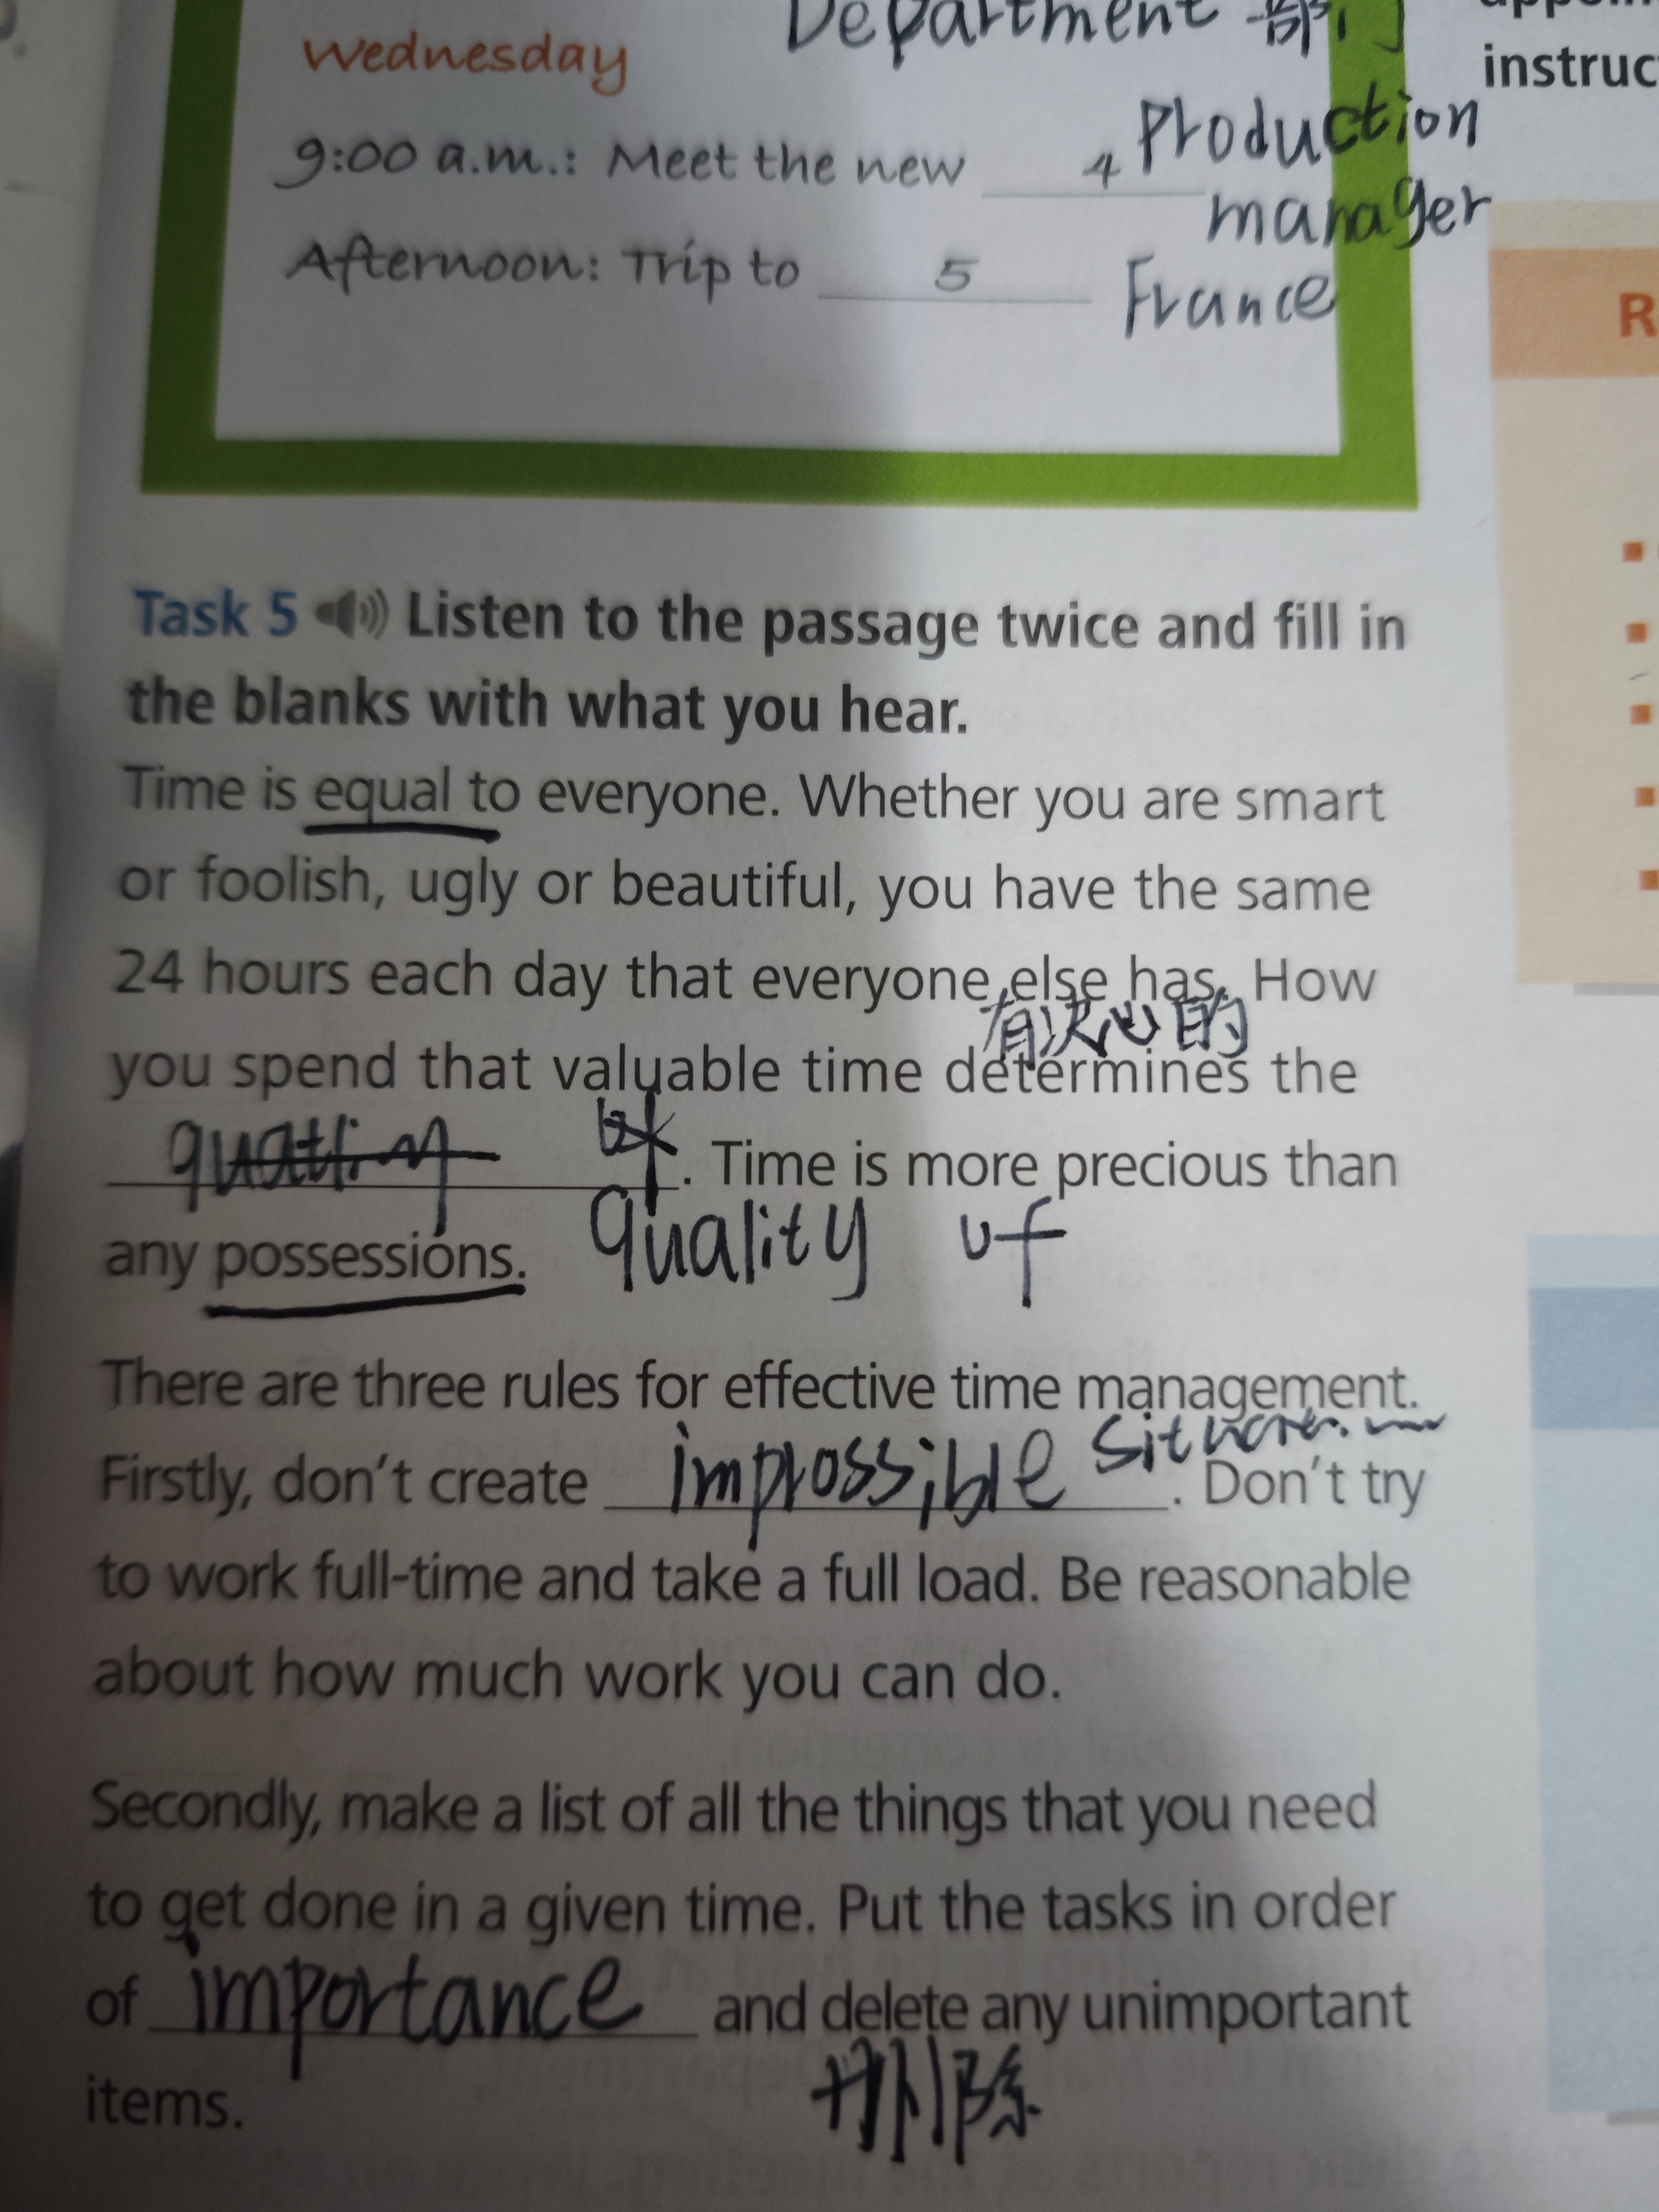 Department 部门
instruc
Wednesday
Production
9:00 a.m.: Meet the new 4
manager
Afternoon: Trip to 5 France
R
Task 5 Listen to the passage twice and fill in
the blanks with what you hear.
Time is equal to everyone. Whether you are smart
or foolish, ugly or beautiful, you have the same
24 hours each day that everyone else has. How
有决心的
you spend that valuable time determines the
. Time is more precious than
any possessions. quality of
There are three rules for effective time management.
Firstly, don't create impossible . Don't try
to work full-time and take a full load. Be reasonable
about how much work you can do.
Secondly, make a list of all the things that you need
to get done in a given time. Put the tasks in order
of importance and delete any unimportant
items. 删除